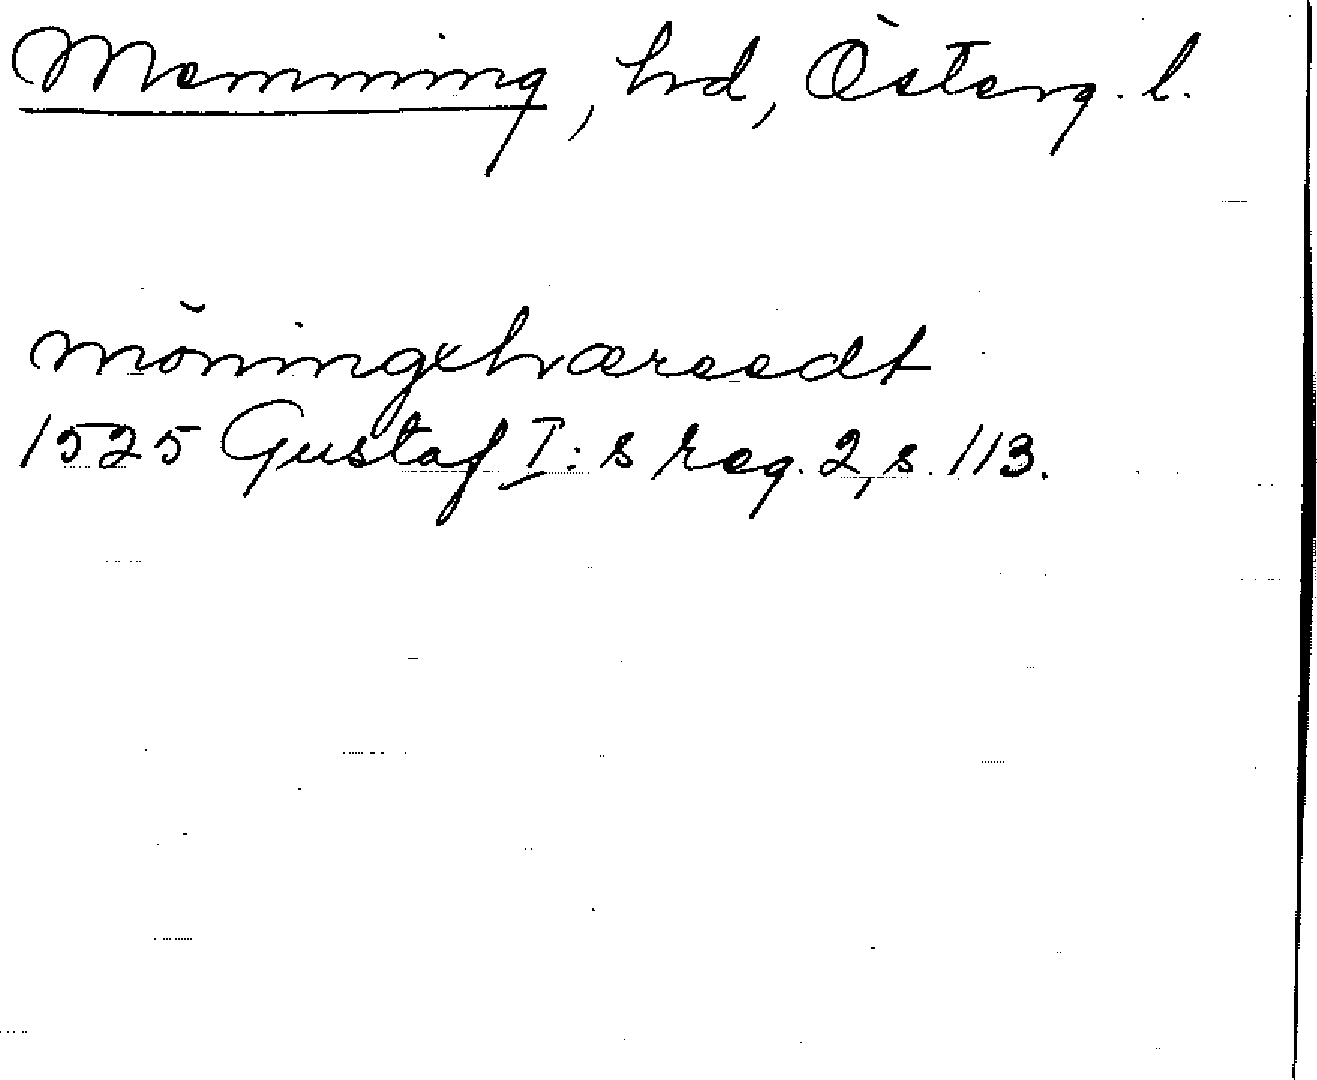 Memming, hd, Österg. l.
möningxhæreedt
1525 Gustaf I:s reg. 2, s. 113.